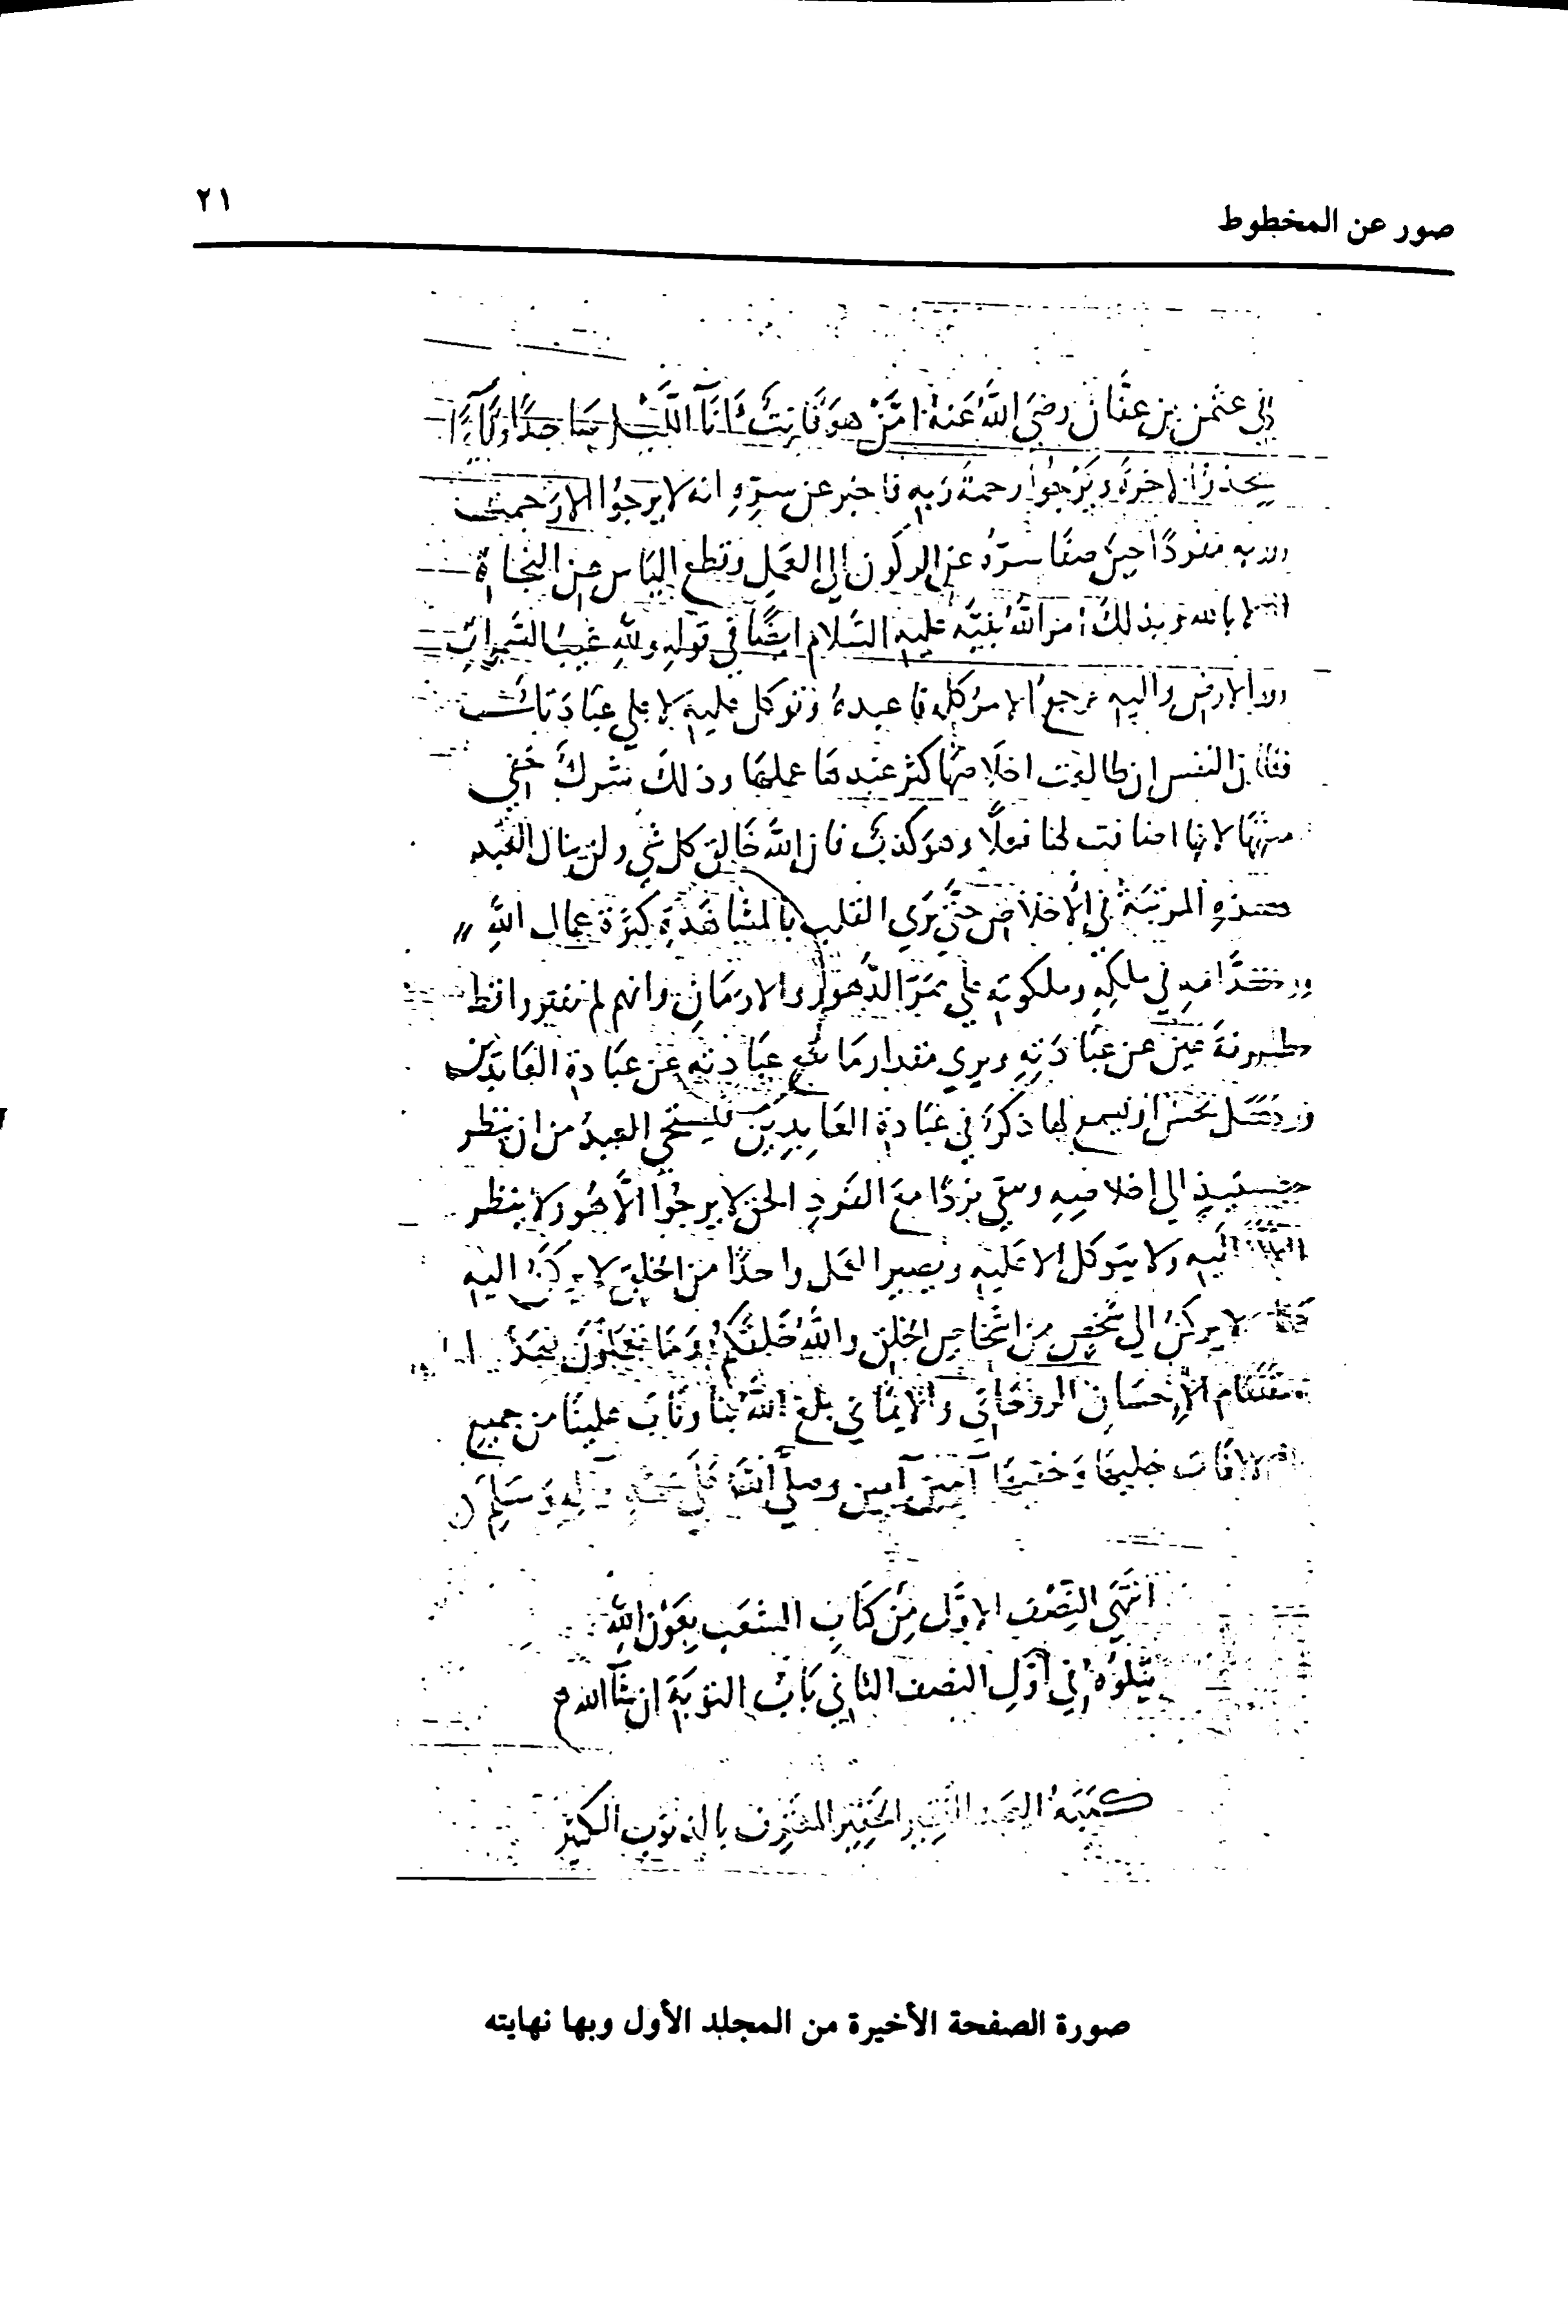 صور عن المخطوط
٢١
في عثمن بن عفان رضي الله عنه امّن هو قانت آناَ الليل ساجدًا وقاَئما
يحذر الاخرة ويرجوا رحمة ربه فاخبر عن سره انه لا يرجوا الا رحمت
ربه مفردًا حين صفا سره عن الركون الى العمل وقطع الياس عن النجاة
الا بالله وبذلك امر الله نبيّه عليه السلام ايضًا في قوله ولله غيب السموات
والارض واليه يرجع الامر كله فاعبده وتوكل عليه لا على عبادتك
فان النفس ان طالعت اخلاصها كثر عندها عملها وذلك شرك خفي
منها لانها اضافت لها فعلًا وهو كذب فان الله خالق كل شي ولن ينال العبد
هذه المرتبة في الاخلاص حتى يرى القلب بالمشاهدة كثرة عمال الله
وخدّامه في ملكه وملكوته على ممر الدهور والازمان وانهم لم يفتروا قط
طرفة عين عن عبادته ويرى مقدار ما تقع عبادته عن عبادة العابدين
وهل يحسن ان يسمع لها ذكرَ في عبادة العابدين فليستحي العبد من ان ينظر
حينيذٍ الى اخلاصه وبقي فردًا مع الفرد الحق لا يرجوا الّا هو ولا ينظر
الا اليه ولا يتوكل الا عليه ويصير العمل واحدًا من الخلق لا يركن اليه
كما لا يركن الى شخص من اشخاص الخلق والله خلقكم وما تعملون فهذا
مقام الاحسان الروحاني والايماني بلغ الله بنا وتاب علينا من جميع
الافات جليها وخفيها آمين آمين وصلى الله على محمد وآله وسلم
انتهى النصف الاول من كتاب الشعب بعون الله
يتلوه في اول النصف الثاني باب التوبة ان شاَ الله
كتبه العبد الفقير الحقير المعترف بالذنوب الكثير
صورة الصفحة الأخيرة من المجلد الأول وبها نهايته